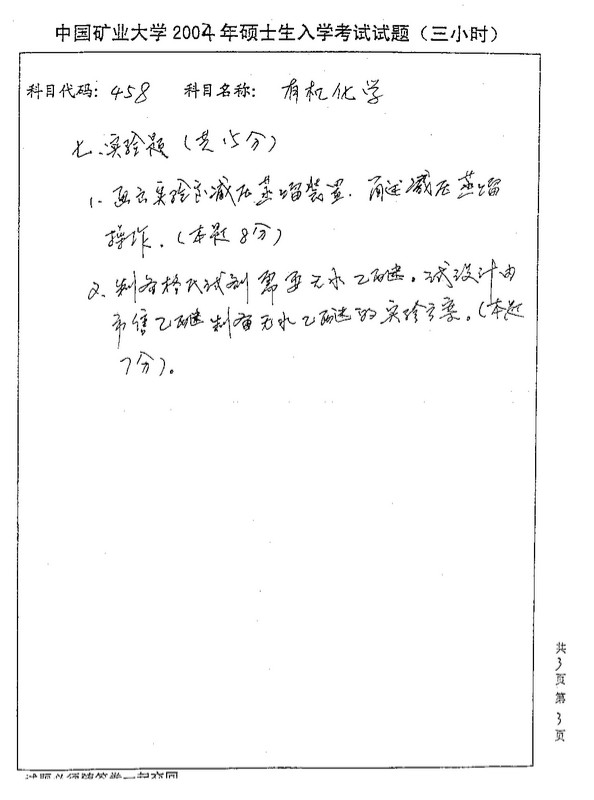 中国矿业大学2004年硕士生入学考试试题（三小时）
科目代码：458 科目名称：有机化学
七、实验题（共15分）
1、画出实验室减压蒸馏装置，简述减压蒸馏
操作。（本题8分）
2、制备格氏试剂需要无水乙醚。试设计由
市售乙醚制备无水乙醚的实验方案。（本题
7分）。
共3页第3页
试题必须随答卷一起交回